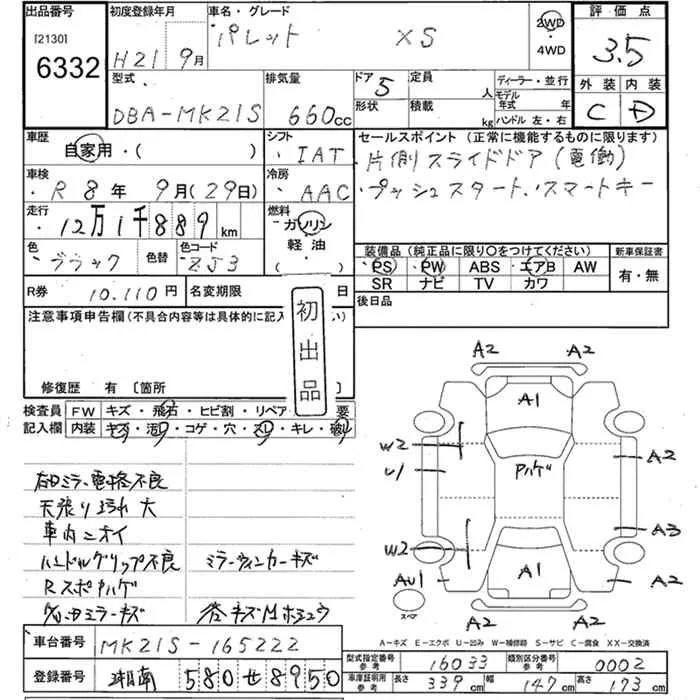 出品番号
[2130]
6332
初度登録年月
H21 9月
車名・グレード
パレット XS
2WD
・4WD
評価点
3.5
外装 内装
C D
型式
DBA-MK21S
排気量
660cc
ドア 5
形状
定員 人
積載 kg
ディーラー・並行
モデル年式 年
ハンドル 左・右
車歴
自家用・( )
シフト
IAT
セールスポイント(正常に機能するものに限ります)
片側スライドドア(電働)
プッシュスタート.スマートキー
車検
R8年 9月(29日)
冷房
AAC
走行
12万1千889km
燃料
ガソリン
軽油
( )
色
ブラック
色替
色コード
ZJ3
装備品(純正品に限り○をつけてください)
PS PW ABS エアB AW
SR ナビ TV カワ
新車保証書
有・無
R券 10.110円
名変期限 日
後日品
注意事項申告欄(不具合内容等は具体的に記入
初出品
修復歴 有 〔箇所
検査員
記入欄
FW キズ・飛石・ヒビ割・リペア 要
内装 キズ・汚れ・コゲ・穴・スレ・キレ・破れ
右ロミラー電格不良
天張り汚れ 大
車内ニオイ
ハンドルグリップ不良 ミラーウィンカーキズ
Rスポハゲ
A2 A2
A1
W2
U1
Aハゲ
A2
A3
W2
AU1
A1
A2
A2 A2
スペア
A-キズ E-エクボ U-凹み W-補修跡 S-サビ C-腐食 XX-交換済
車台番号 MK21S-165222
登録番号 湘南 580 せ 8950
型式指定番号 参考 16033
類別区分番号 参考 0002
車庫証明用 参考 長さ 339cm 幅 147cm 高さ 173cm